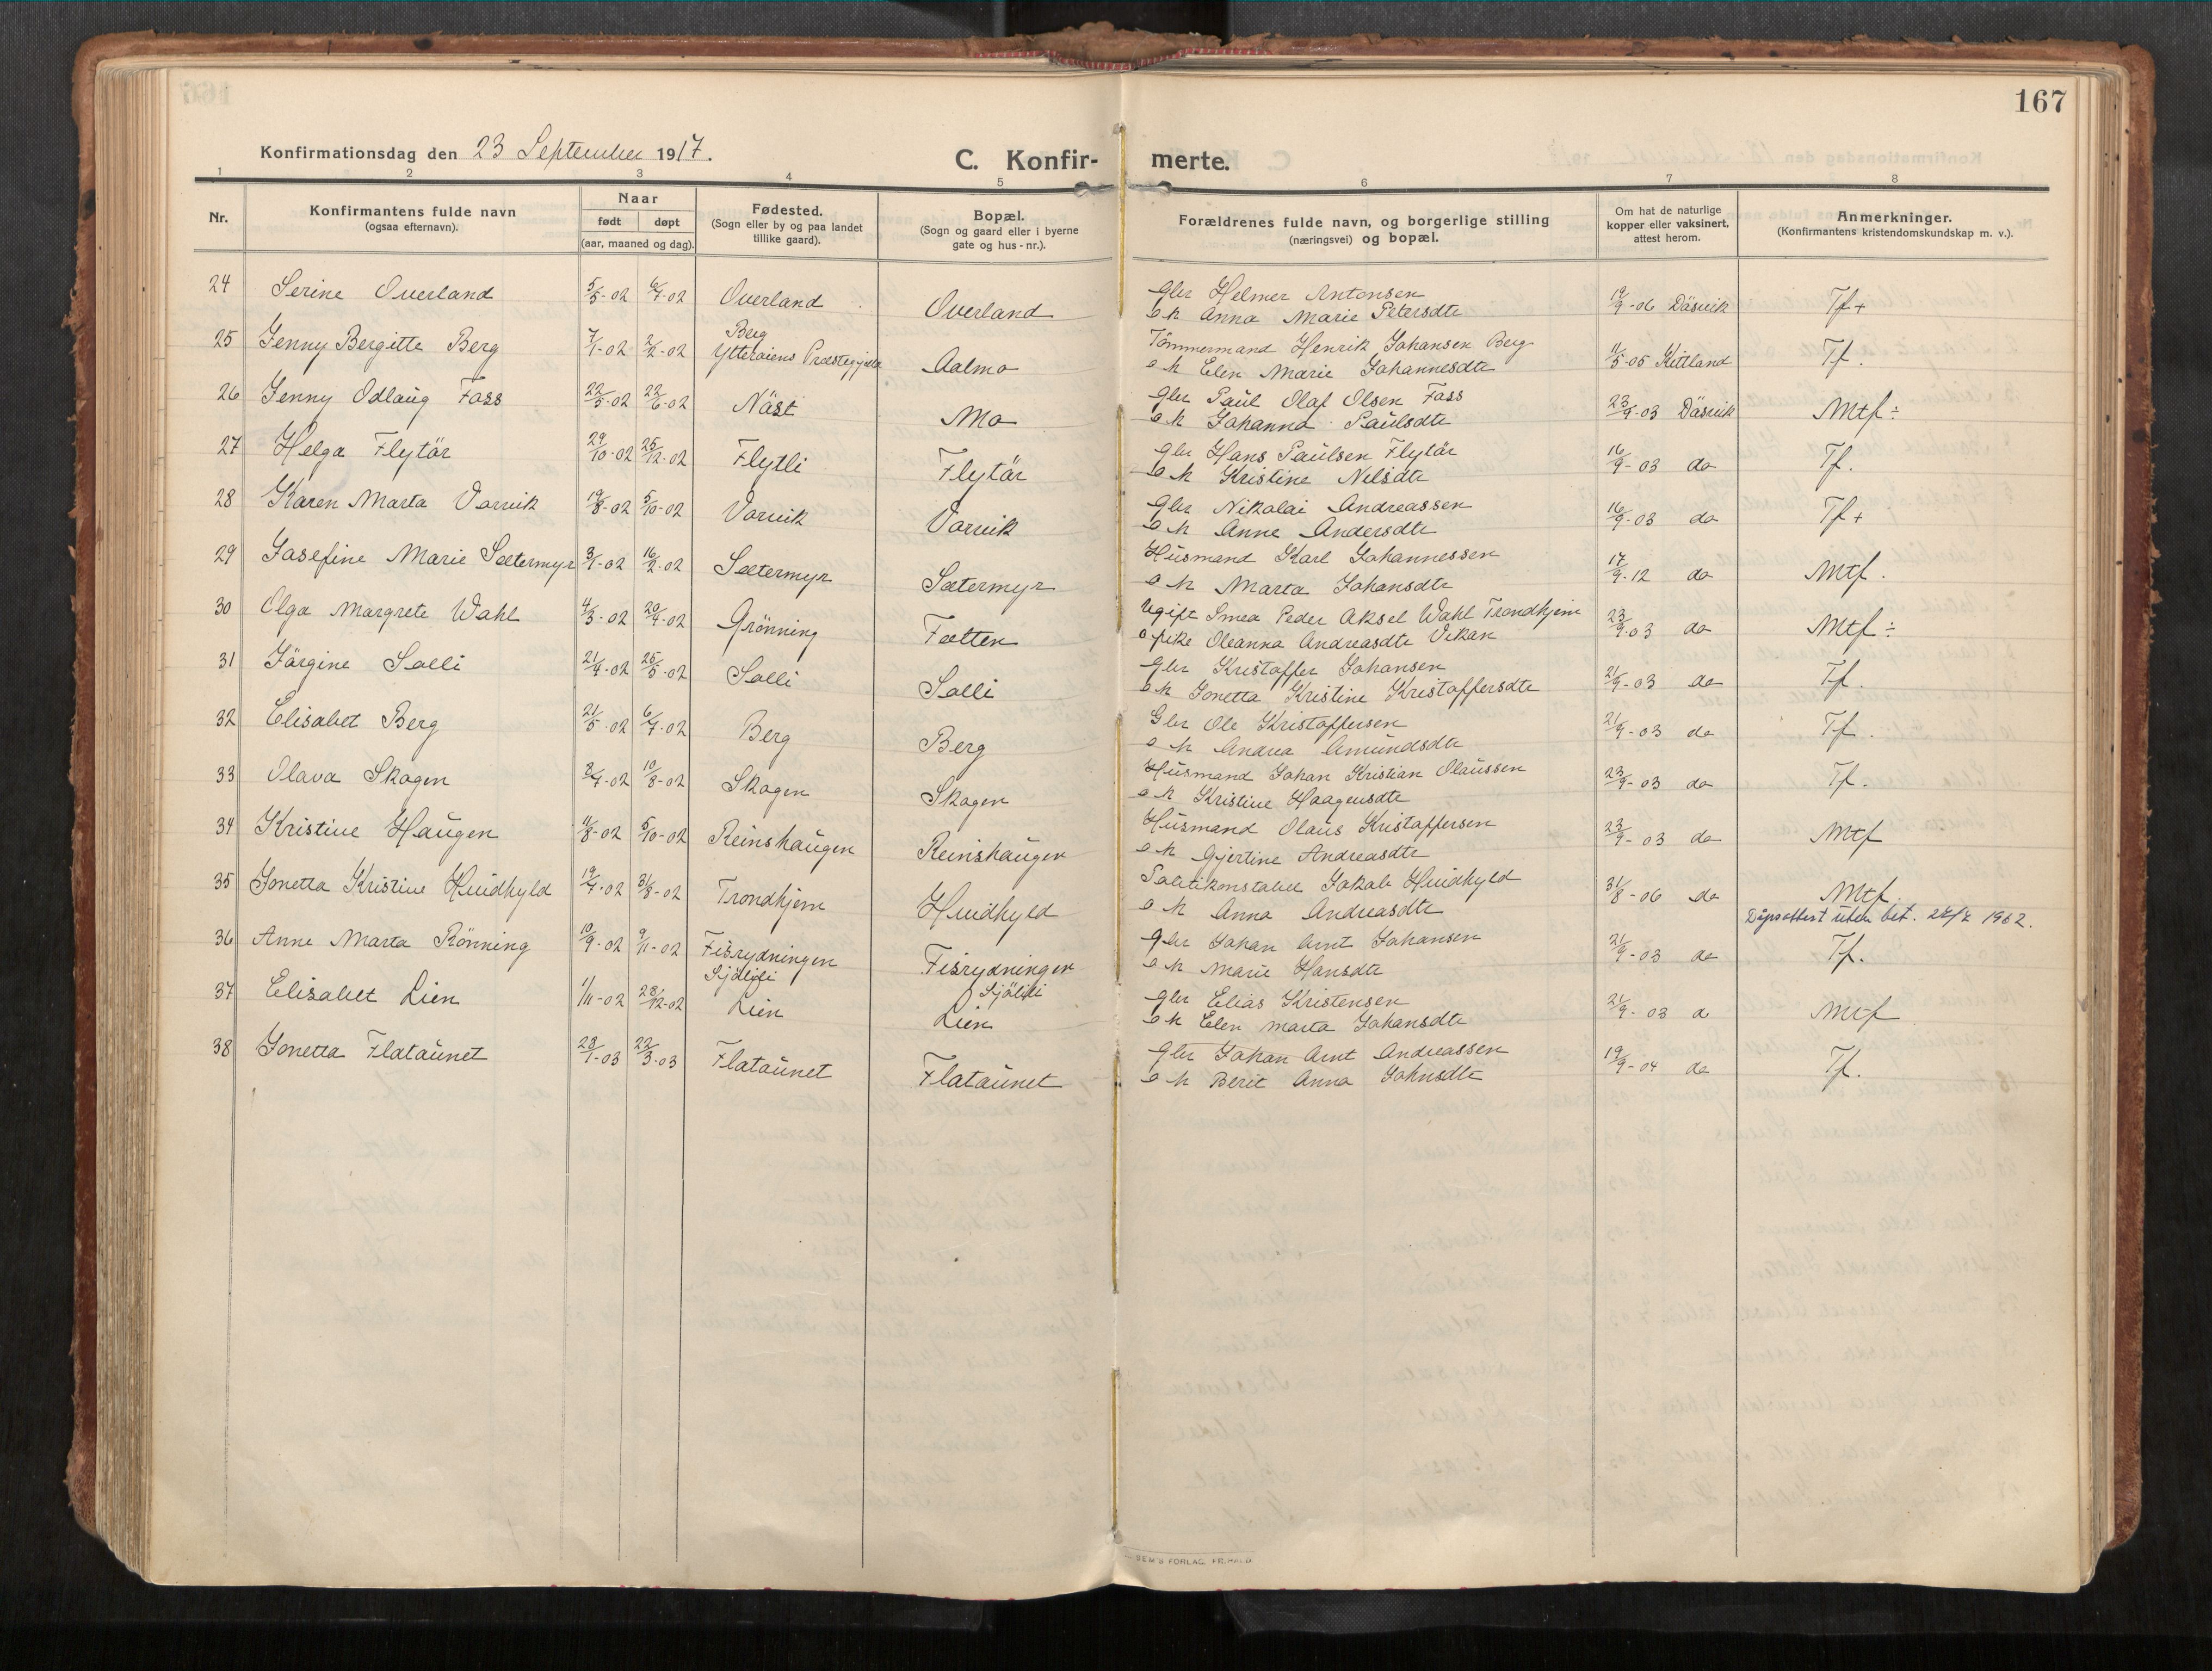 167
Konfirmationsdag den 23 September 1917.
C. Konfir- merte.
1 2 3 4 5 6 7 8
Nr.
Konfirmantens fulde navn
(ogsaa efternavn).
Naar
født døpt
(aar, maaned og dag).
Fødested.
(Sogn eller by og paa landet
tillike gaard).
Bopæl.
(Sogn og gaard eller i byerne
gate og hus - nr.).
Forældrenes fulde navn, og borgerlige stilling
(næringsvei) og bopæl.
Om hat de naturlige
kopper eller vaksinert,
attest herom.
Anmerkninger.
(Konfirmantens kristendomskundskap m. v.).
24 Serine Overland 5/5-02 6/7-02 Overland Overland
Gbr Helmer Antonsen
o k Anna Marie Petersdtr
19/9-06 Däsvik Tf+
25 Jenny Bergitte Berg 7/1-02 2/2-02 Berg
Ytterøiens Præstegjeld Aalmo
Tömmermand Henrik Johansen Berg
o k Elen Marie Johannesdtr
11/5-05 Kittland Tf.
26 Jenny Odlaug Foss 22/5-02 22/6-02 Näst Mo
Gbr Paul Olaf Olsen Foss
o k Johanna Paulsdtr
23/9-03 Däsvik Mtf÷
27 Helga Flytär 29/10-02 25/12-02 Flytli Flytär
Gbr Hans Paulsen Flytär
o k Kristine Nilsdtr
16/9-03 do Tf.
28 Karen Marta Vorvik 19/8-02 5/10-02 Vorvik Vorvik
Gbr Nikolai Andreassen
o k Anne Andersdtr
16/9-03 do Tf+
29 Josefine Marie Sætermyr 3/1-02 16/2-02 Sætermyr Sætermyr
Husmand Karl Johannessen
o k Marta Johansdtr
17/9-12 do Mtf.
30 Olga Margrete Wahl 4/3-02 20/4-02 Grönning Fætten
Ugift Smed Peder Aksel Wahl Trondhjem
o pike Oleanna Andreasdtr Vikan
23/9-03 do Mtf÷
31 Jörgine Solli 21/4-02 25/5-02 Solli Solli
Gbr Kristoffer Johansen
o k Jonetta Kristine Kristoffersdtr
21/9-03 do Tf.
32 Elisabet Berg 21/5-02 6/7-02 Berg Berg
Gbr Ole Kristoffersen
o k Andrea Amundsdtr
21/9-03 do Tf.
33 Olava Skogen 8/7-02 10/8-02 Skogen Skogen
Husmand Johan Kristian Olaussen
o k Kristine Haagensdtr
23/9-03 do Tf.
34 Kristine Haugen 11/8-02 5/10-02 Reinshaugen Reinshaugen
Husmand Olaus Kristoffersen
o k Gjertine Andreasdtr
23/9-03 do Mtf
35 Jonetta Kristine Huidhyld 19/7-02 31/8-02 Trondhjem Huidhyld
Politikonstabel Jakob Huidhyld
o k Anna Andreasdtr
31/8-06 do Mtf.
Dåpsattest uten bet. 1962.
36 Anne Marta Rönning 10/9-02 9/11-02 Fisrydningen Fisrydningen
Gbr Johan Arnt Johansen
o k Marie Hansdtr
21/9-03 do Tf.
37 Elisabet Lien 1/11-02 28/12-02 Sjölifi
Lien
Sjölifi
Lien
Gbr Elias Kristensen
o k Elen Marta Johansdtr
21/9-03 d Mtf
38 Jonetta Flataunet 28/1-03 22/3-03 Flataunet Flataunet
Gbr Johan Arnt Andreassen
o k Berit Anna Johnsdtr
19/9-04 do Tf.
SEM'S FORLAG, FR.HALD